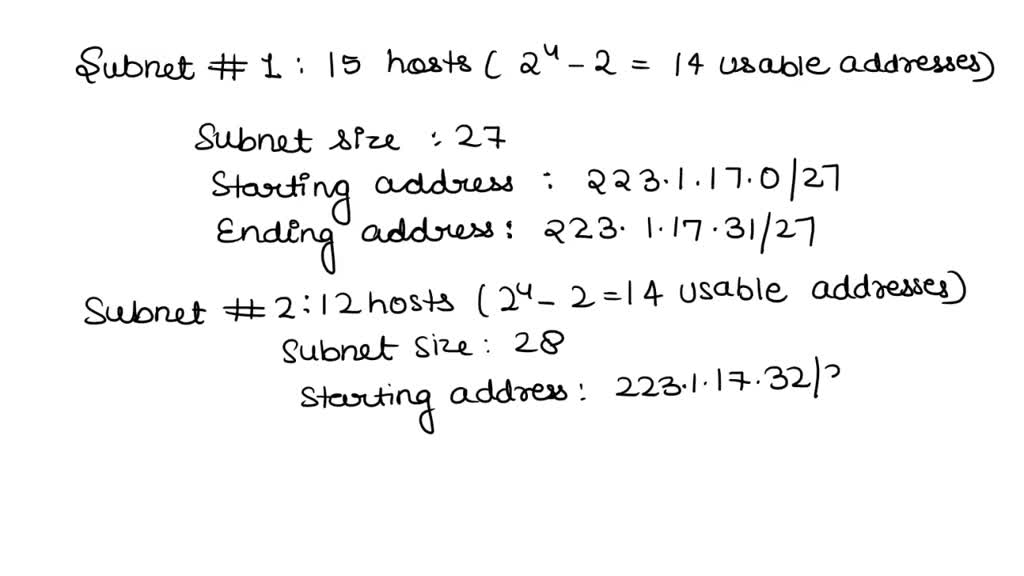 Subnet # 1 : 15 hosts ( 2⁴ - 2 = 14 usable addresses)
Subnet size : 27
Starting address : 223.1.17.0/27
Ending address : 223.1.17.31/27
Subnet # 2 : 12 hosts (2⁴ - 2 = 14 usable addresses)
Subnet size : 28
Starting address : 223.1.17.32/